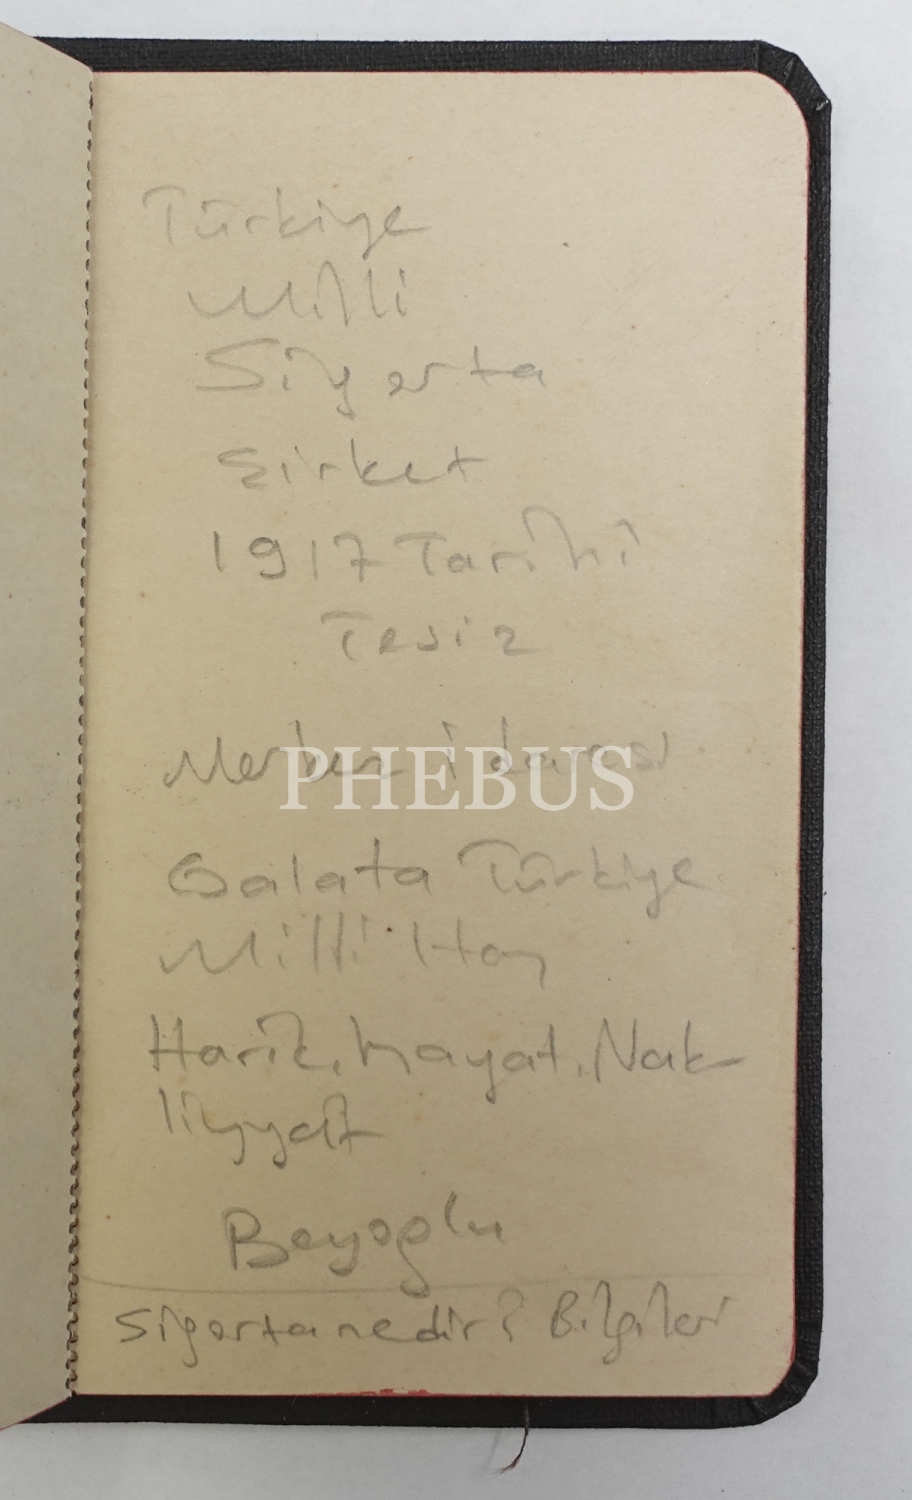 Türkiye
Milli
Sigorta
Şirket
1917 Tarihi
Tesis
Merkez idaresi
PHEBUS
Galata Türkiye
Milli Han
Harik, hayat, Nak
liyyat
Beyoglu
Sigorta nedir? Bilgileri